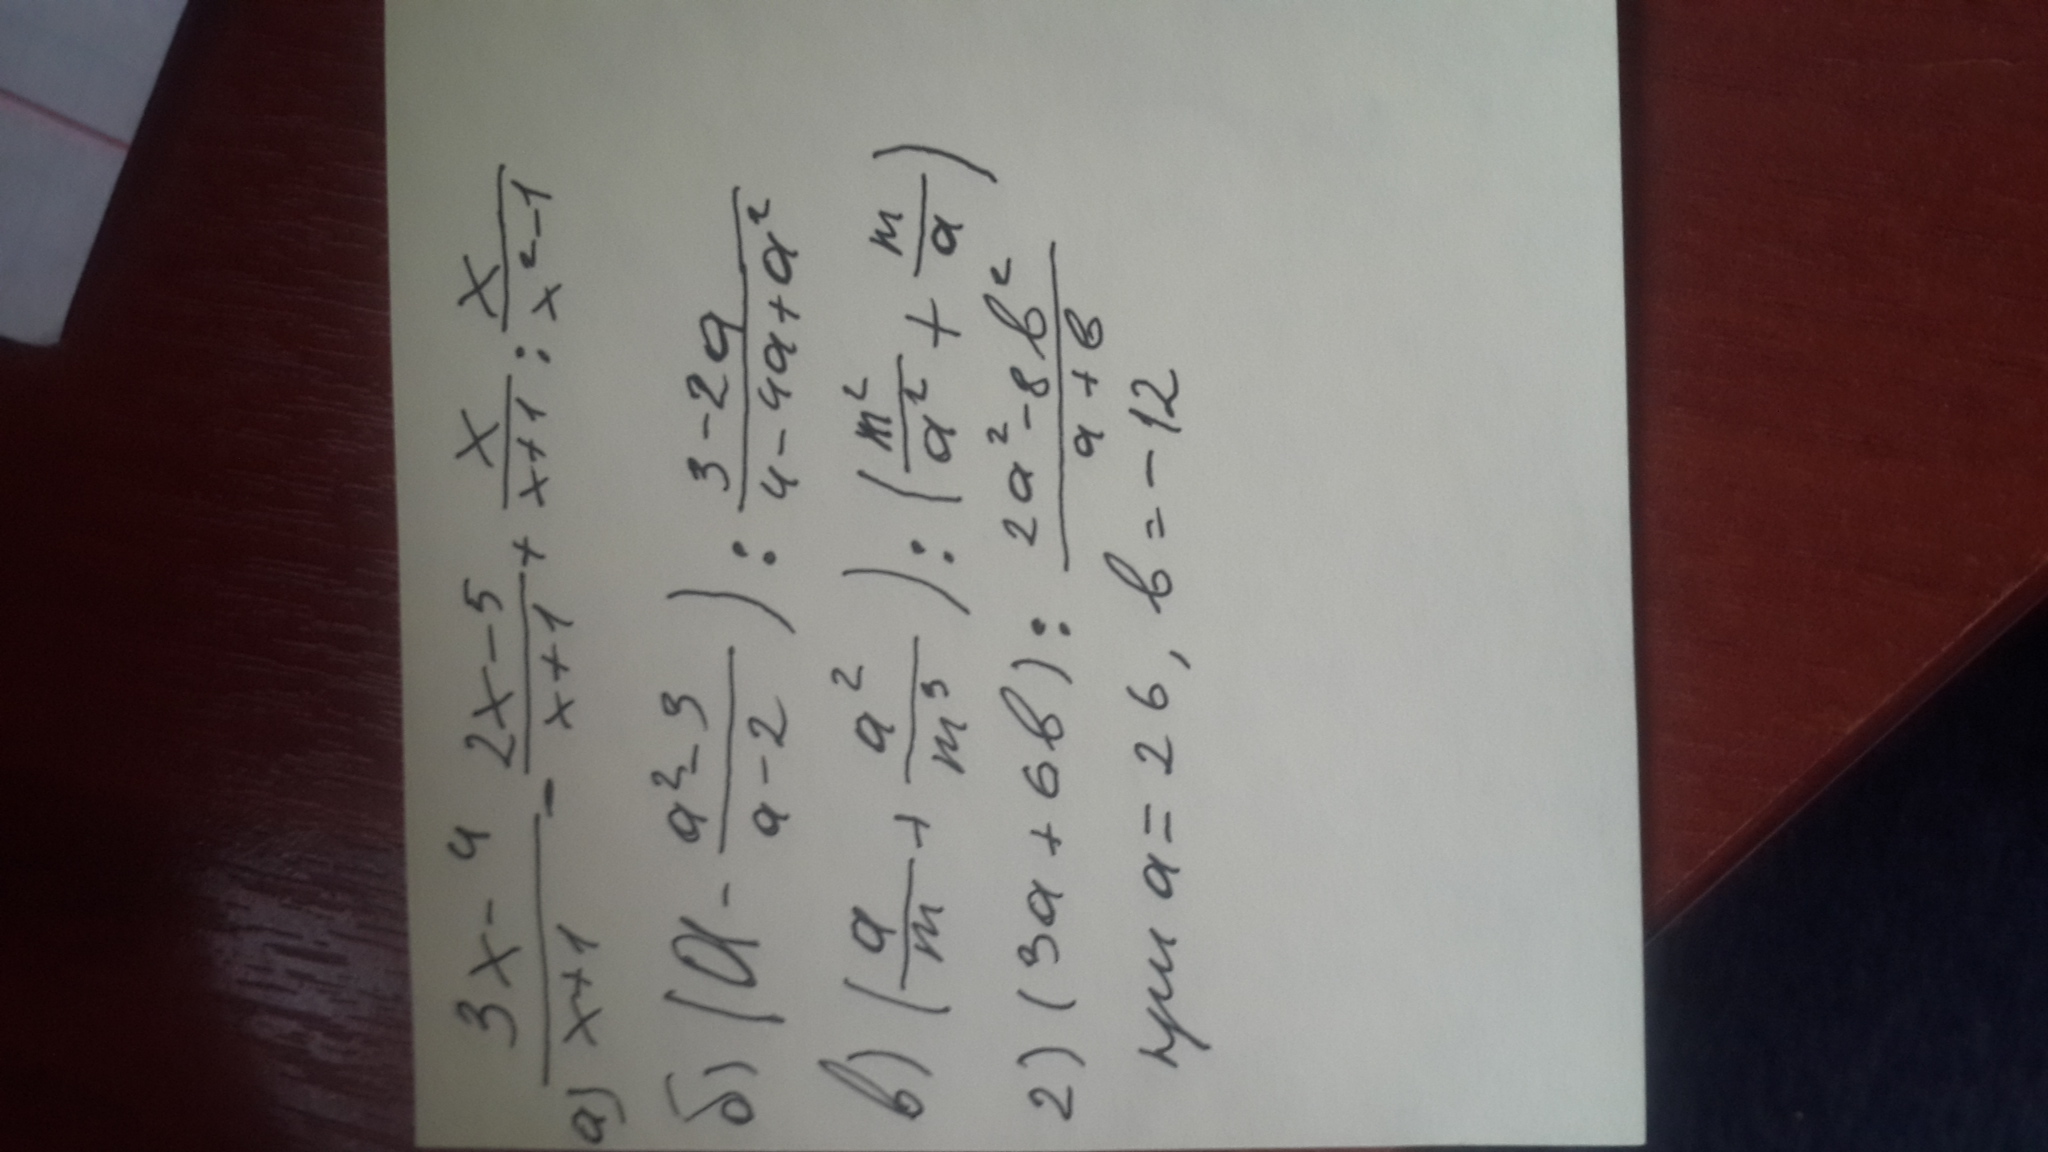 а) \frac{3x-4}{x+1} - \frac{2x-5}{x+1} + \frac{x}{x+1} : \frac{x}{x^2-1}
б) (a - \frac{a^2-3}{a-2}) : \frac{3-2a}{4-4a+a^2}
в) (\frac{a}{m} + \frac{a^2}{m^3}) : (\frac{m^2}{a^2} + \frac{m}{a})
2) (3a+6b) : \frac{2a^2-8b^2}{a+b}
при a=26, b=-12